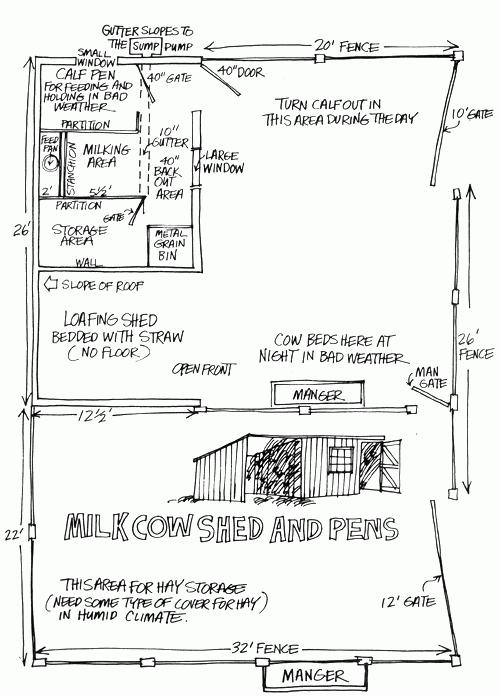 GUTTER SLOPES TO
THE SUMP PUMP
20' FENCE
SMALL
WINDOW
CALF PEN
FOR FEEDING AND
HOLDING IN BAD
WEATHER
40" GATE
40" DOOR
TURN CALF OUT IN
THIS AREA DURING THE DAY
10' GATE
PARTITION
FEED
PAN
STANCHION
MILKING
AREA
10"
GUTTER
40"
BACK
OUT
AREA
LARGE
WINDOW
2'
5½'
PARTITION
GATE
26'
STORAGE
AREA
METAL
GRAIN
BIN
WALL
SLOPE OF ROOF
LOAFING SHED
BEDDED WITH STRAW
(NO FLOOR)
COW BEDS HERE AT
NIGHT IN BAD WEATHER
26'
FENCE
OPEN FRONT
MAN
GATE
MANGER
12½'
22'
MILK COW SHED AND PENS
THIS AREA FOR HAY STORAGE
(NEED SOME TYPE OF COVER FOR HAY)
IN HUMID CLIMATE.
12' GATE
32' FENCE
MANGER